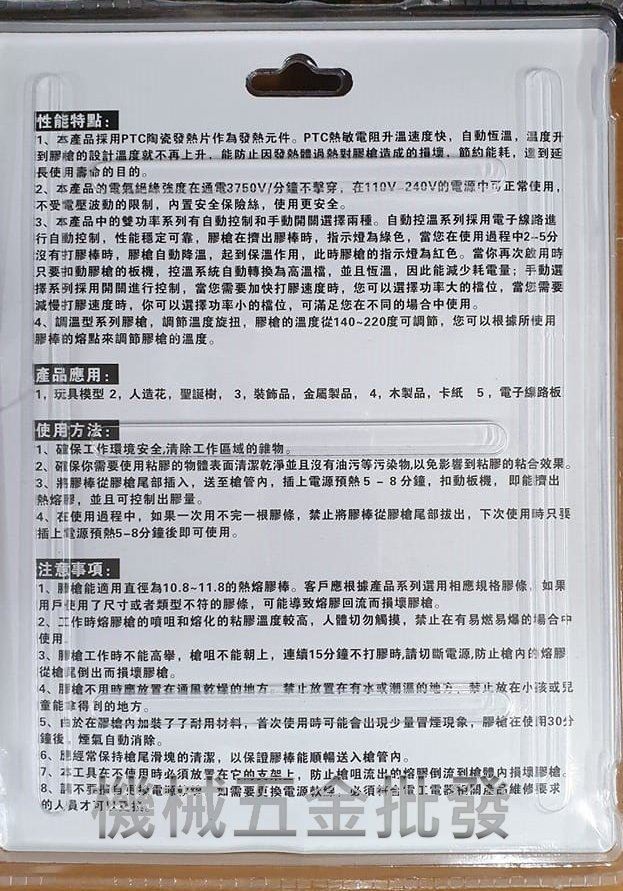 性能特點：
1、本產品採用PTC陶瓷發熱片作為發熱元件。PTC熱敏電阻升溫速度快，自動恆溫，溫度升
到膠槍的設計溫度就不再上升，能防止因發熱體過熱對膠槍造成的損壞，節約能耗，達到延
長使用壽命的目的。
2、本產品的電氣絕緣強度在通電3750V/分鐘不擊穿，在110V-240V的電源中可正常使用，
不受電壓波動的限制，內置安全保險絲，使用更安全。
3、本產品中的雙功率系列有自動控制和手動開關選擇兩種。自動控溫系列採用電子線路進
行自動控制，性能穩定可靠，膠槍在擠出膠棒時，指示燈為綠色，當您在使用過程中2-5分
沒有打膠棒時，膠槍自動降溫，起到保溫作用，此時膠槍的指示燈為紅色。當你再次啟用時
只要扣動膠槍的板機，控溫系統自動轉換為高溫檔，並且恆溫，因此能減少耗電量；手動選
擇系列採用開關進行控制，當您需要加快打膠速度時，您可以選擇功率大的檔位，當您需要
減慢打膠速度時，你可以選擇功率小的檔位，可滿足您在不同的場合中使用。
4、調溫型系列膠槍，調節溫度旋扭，膠槍的溫度從140~220度可調節，您可以根據所使用
膠棒的熔點來調節膠槍的溫度。
產品應用：
1，玩具模型 2，人造花，聖誕樹， 3，裝飾品，金屬製品， 4，木製品，卡紙 5，電子線路板
使用方法：
1、確保工作環境安全,清除工作區域的雜物。
2、確保你需要使用粘膠的物體表面清潔乾淨並且沒有油污等污染物,以免影響到粘膠的粘合效果。
3、將膠棒從膠槍尾部插入，送至槍管內，插上電源預熱5 - 8分鐘，扣動板機，即能擠出
熱熔膠，並且可控制出膠量。
4、在使用過程中，如果一次用不完一根膠條，禁止將膠棒從膠槍尾部拔出，下次使用時只要
插上電源預熱5-8分鐘後即可使用。
注意事項：
1、膠槍能適用直徑為10.8~11.8的熱熔膠棒。客戶應根據產品系列選用相應規格膠條，如果
用戶使用了尺寸或者類型不符的膠條，可能導致熔膠回流而損壞膠槍。
2、工作時熔膠槍的噴咀和熔化的粘膠溫度較高，人體切勿觸摸，禁止在有易燃易爆的場合中
使用。
3、膠槍工作時不能高舉，槍咀不能朝上，連續15分鐘不打膠時,請切斷電源,防止槍內的熔膠
從槍尾倒出而損壞膠槍。
4、膠槍不用時應放置在通風乾燥的地方，禁止放置在有水或潮濕的地方，禁止放在小孩或兒
童能拿得到的地方。
5、由於在膠槍內加裝了了耐用材料，首次使用時可能會出現少量冒煙現象，膠槍在使用30分
鐘後，煙氣自動消除。
6、應經常保持槍尾滑塊的清潔，以保證膠棒能順暢送入槍管內。
7、本工具在不使用時必須放置在它的支架上，防止槍咀流出的熔膠倒流到槍體內損壞膠槍。
8、請不要 電源 如需要更換電源軟線，必須符合電工電器相關產品維修要求
的人員才可以
機械五金批發